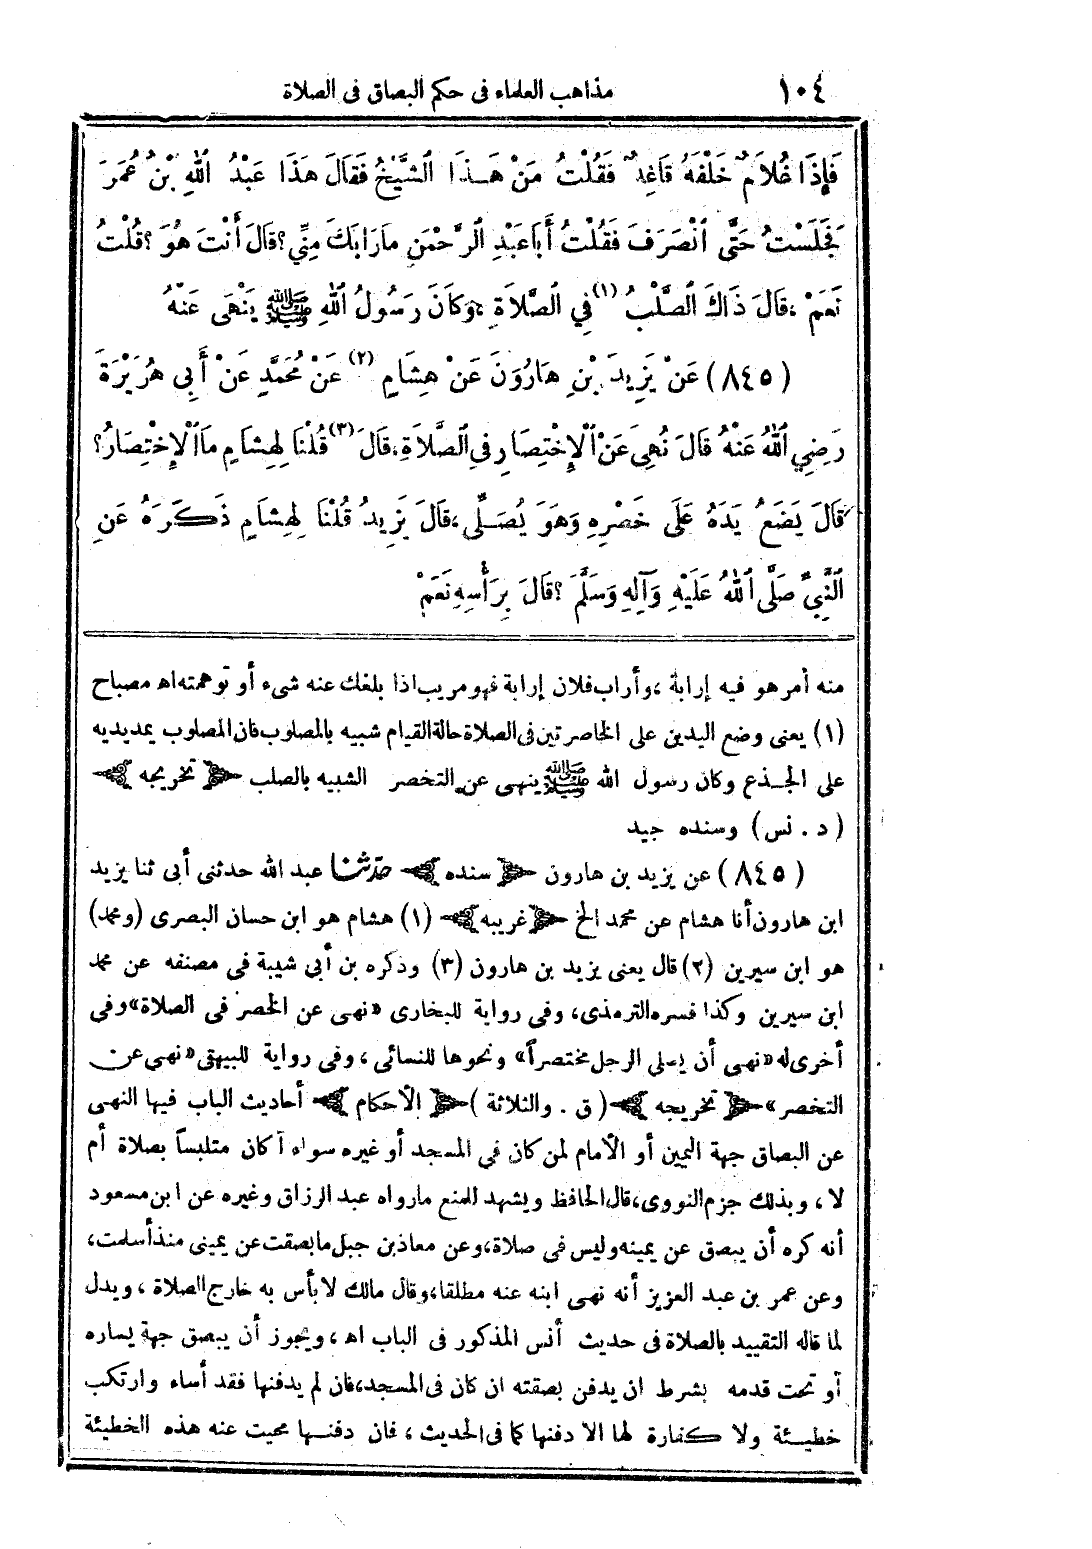 ١٠٤ مذاهب العلماء فى حكم البصاق فى الصلاة
فَإِذَا غُلَامٌ خَلْفَهُ قَاعِدٌ فَقُلْتُ مَنْ هَـذَا الشَّيْخُ فَقَالَ هَذَا عَبْدُ اللهِ بْنُ عُمَرَ
فَجَلَسْتُ حَتَّى انْصَرَفَ فَقُلْتُ أَبَا عَبْدِ الرَّحْمَنِ مَارَابَكَ مِنِّي؟ قَالَ أَنْتَ هُوَ؟ قُلْتُ
نَعَمْ، قَالَ ذَاكَ الصَّلْبُ (١) فِي الصَّلَاةِ، وَكَانَ رَسُولُ اللهِ ﷺ يَنْهَى عَنْهُ
(٨٤٥) عَنْ يَزِيدَ بْنِ هَارُونَ عَنْ هِشَامٍ (٢) عَنْ مُحَمَّدٍ عَنْ أَبِي هُرَيْرَةَ
رَضِيَ اللهُ عَنْهُ قَالَ نُهِيَ عَنْ الْإِخْتِصَارِ فِي الصَّلَاةِ، قَالَ (٣) قُلْنَا لِهِشَامٍ مَا الْإِخْتِصَارُ؟
قَالَ يَضَعُ يَدَهُ عَلَى خَصْرِهِ وَهُوَ يُصَلِّى، قَالَ يَزِيدُ قُلْنَا لِهِشَامٍ ذَكَرَهُ عَنِ
النَّبِيِّ صَلَّى اللهُ عَلَيْهِ وَآلِهِ وَسَلَّمَ؟ قَالَ بِرَأْسِهِ نَعَمْ
منه أمر هو فيه إرابة، وأراب فلان إرابة فهو مريب اذا بلغك عنه شىء أو توهمته اه مصباح
(١) يعنى وضع اليدين على الخاصرتين فى الصلاة حالة القيام شبيه بالمصلوب فان المصلوب يمد يديه
على الجـذع وكان رسول الله ﷺ ينهى عن التخصر الشبيه بالصلب ﴿ تخريجه ﴾
(د . نس) وسنده جيد
(٨٤٥) عن يزيد بن هارون ﴿ سنده ﴾ حدّثنا عبد الله حدثنى أبى ثنا يزيد
ابن هارون أنا هشام عن محمد الخ ﴿ غريبه ﴾ (١) هشام هو ابن حسان البصرى (ومحمد)
هو ابن سيرين (٢) قال يعنى يزيد بن هارون (٣) وذكره بن أبى شيبة فى مصنفه عن محمد
ابن سيرين وكذا فسره الترمذى، وفى رواية للبخارى «نهى عن الخصر فى الصلاة» وفى
أخرى له «نهى أن يصلى الرجل مختصراً» ونحوها للنسائى، وفى رواية للبيهقى «نهى عن
التخصر» ﴿ تخريجه ﴾ (ق . والثلاثة) ﴿ الأحكام ﴾ أحاديث الباب فيها النهى
عن البصاق جهة اليمين أو الأمام لمن كان فى المسجد أو غيره سواء أكان متلبساً بصلاة أم
لا، وبذلك جزم النووى، قال الحافظ ويشهد للمنع مارواه عبد الرزاق وغيره عن ابن مسعود
أنه كره أن يبصق عن يمينه وليس فى صلاة، وعن معاذ بن جبل ما بصقت عن يمينى منذ أسلمت،
وعن عمر بن عبد العزيز أنه نهى ابنه عنه مطلقا، وقال مالك لا بأس به خارج الصلاة، ويدل
لما قاله التقييد بالصلاة فى حديث أنس المذكور فى الباب اه، ويجوز أن يبصق جهة يساره
أو تحت قدمه بشرط ان يدفن بصقته ان كان فى المسجد، فان لم يدفنها فقد أساء وارتكب
خطيـئة ولا كفارة لها الا دفنها كما فى الحديث، فان دفنـها محيت عنه هذه الخطيئة